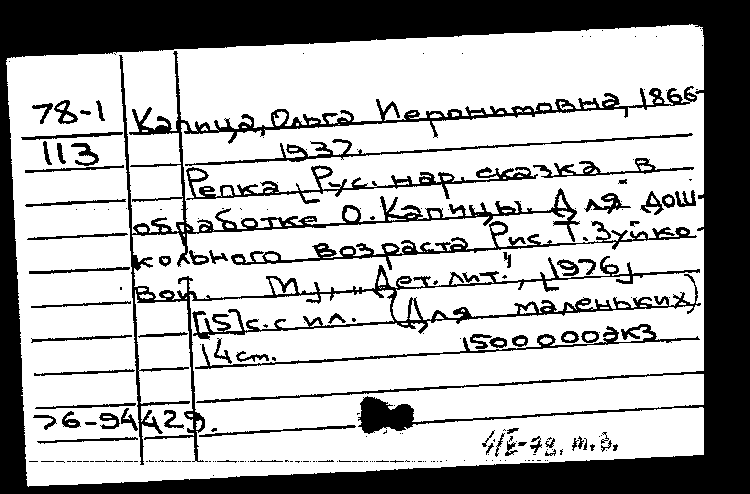 78-1 Капица, Ольга Иеронимовна, 1866-
113 1937.
Репка [Рус. нар. сказка в
обработке О. Капицы. Для дош-
кольного возраста. Рис. Т. Зуйко-
вой. М., „Дет. лит.", [1976].
[15] с. с ил. (Для маленьких)
14 см. 1500000экз
76-94429.